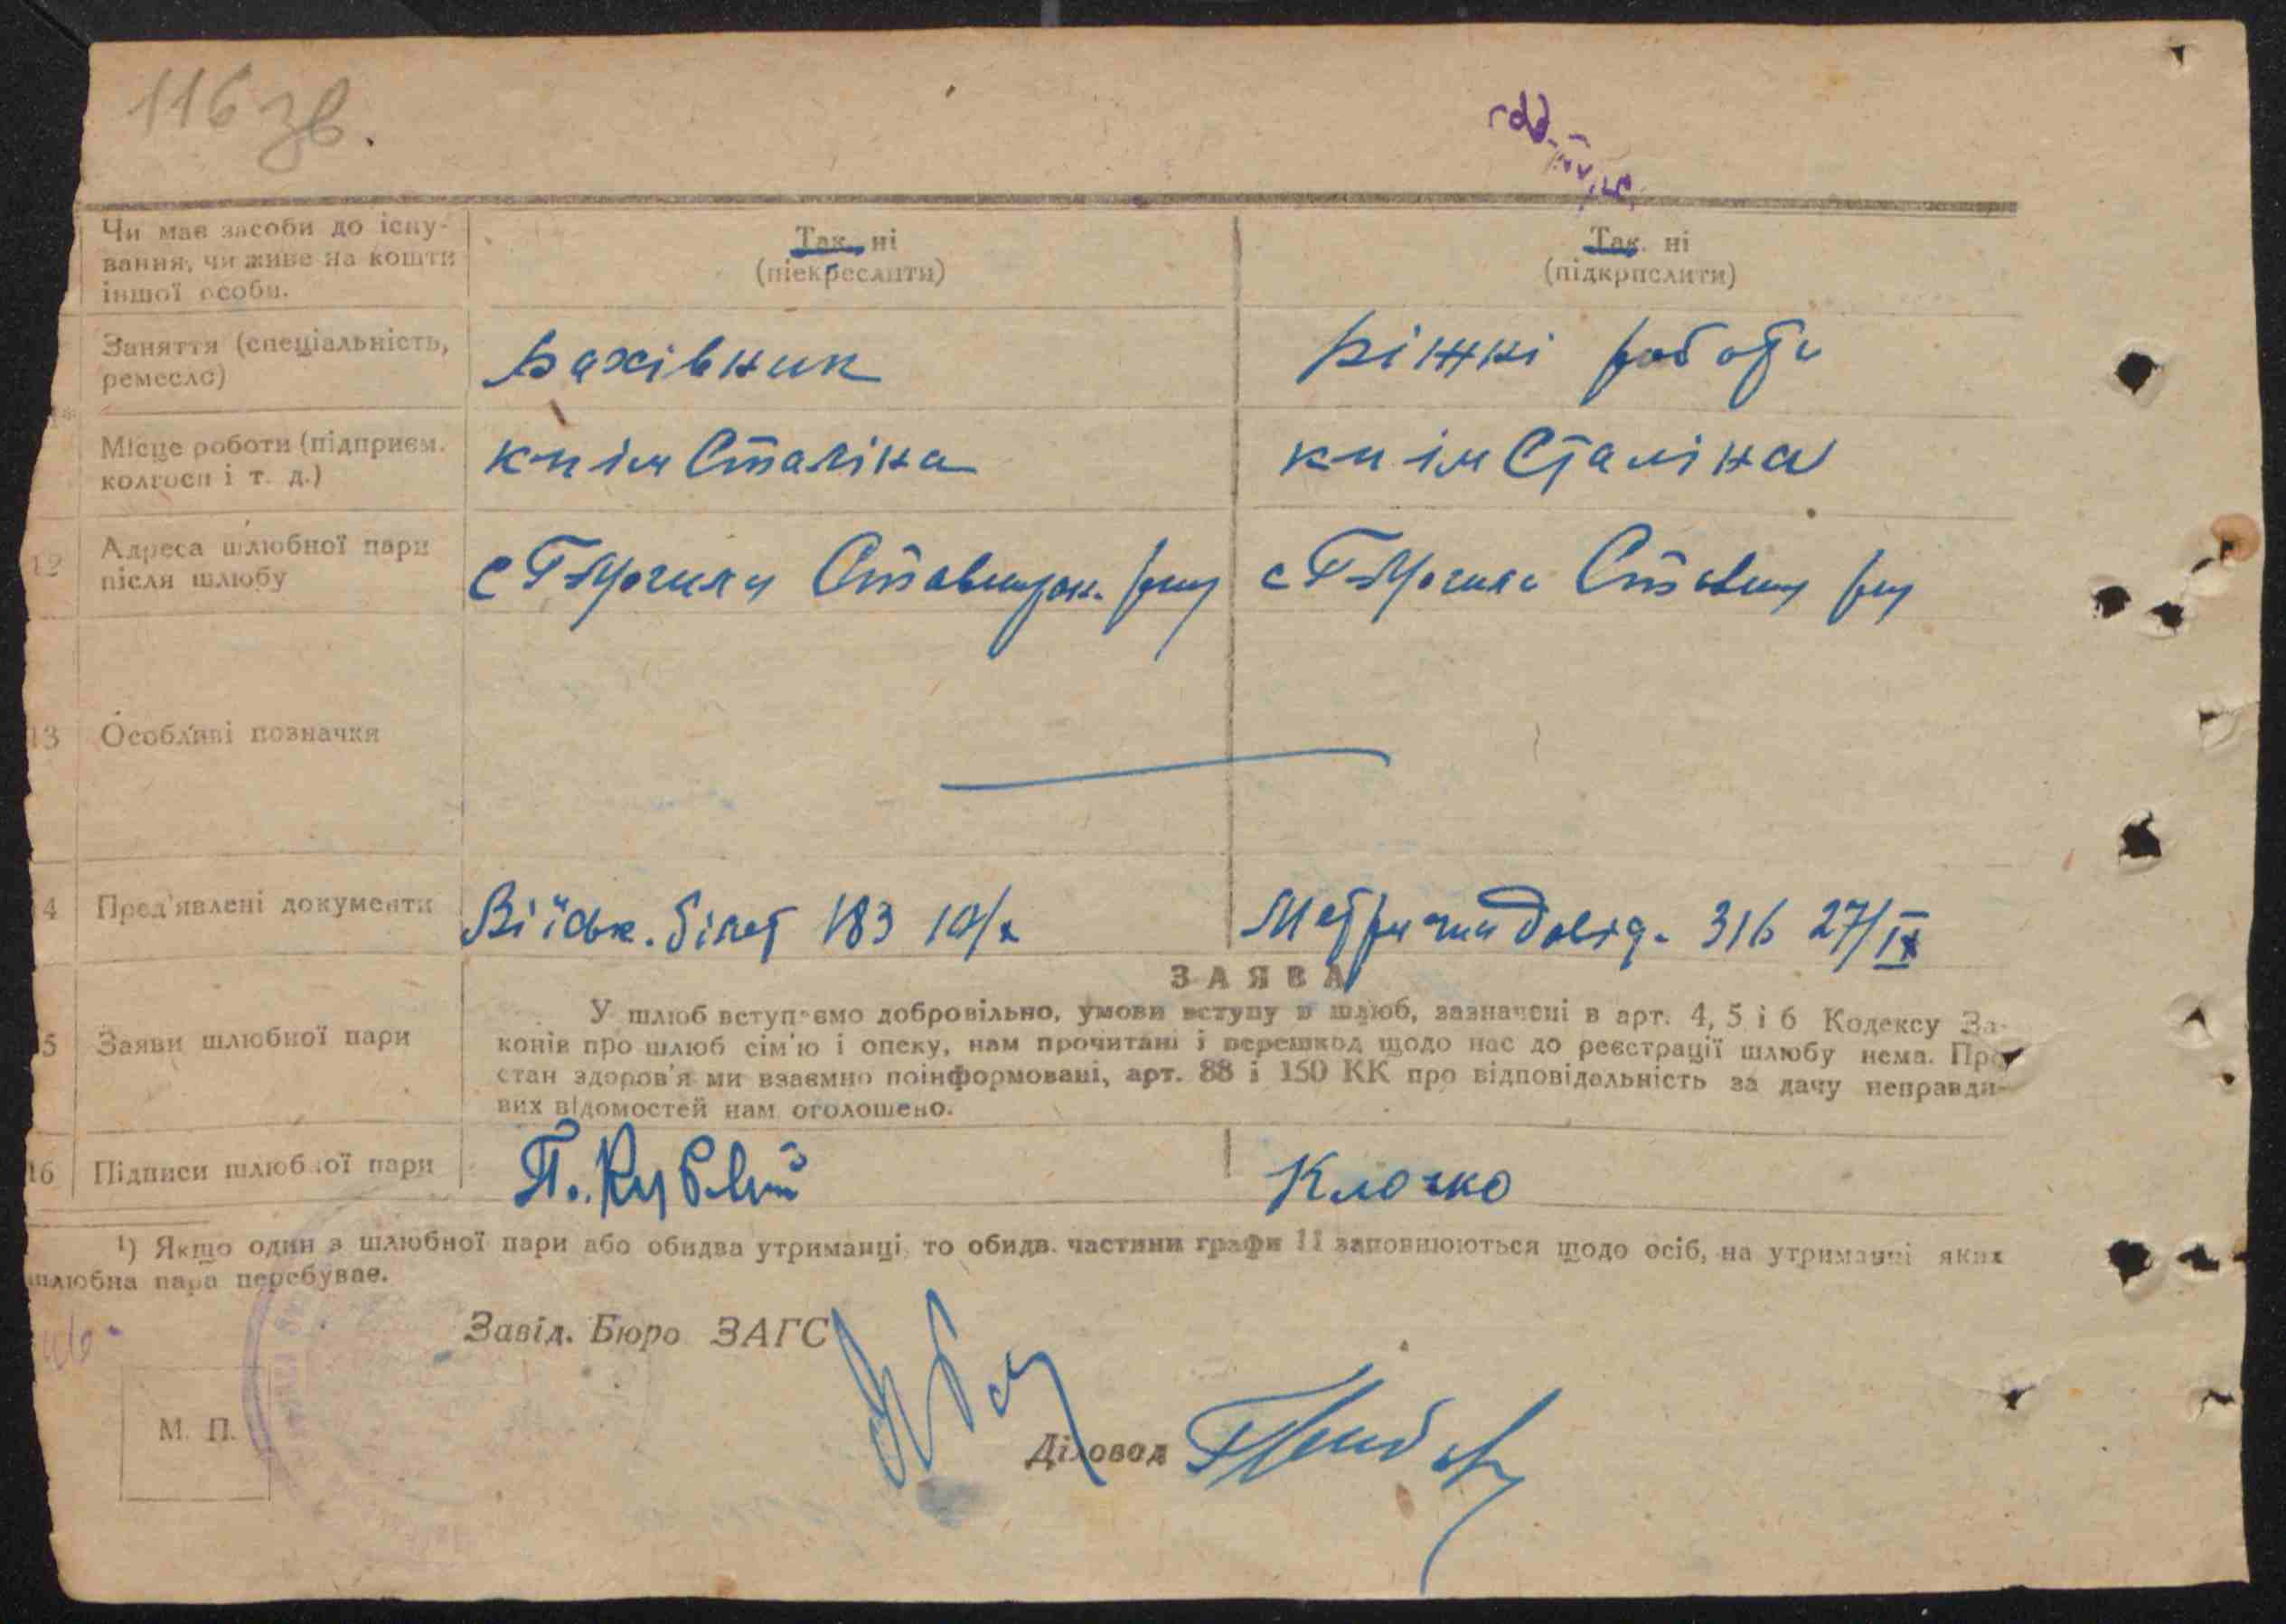 116 зв.
Чи має засоби до існу-
вання, чи живе на кошти
іншої особи.
Так. ні
(піекреслити)
Так. ні
(підкрислити)
Заняття (спеціальність,
ремесло)
Рахівник
Ріжні роботи
Місце роботи (підприєм.
колгосп і т. д.)
кп ім Сталіна
кп ім Сталіна
12
Адреса шлюбної пари
після шлюбу
с Т-Могила
с Т-Могила
13
Особливі позначки
4
Пред'явлені документи
Війск. білет 183 10/х
Метрична довід. 316 27/IX
ЗАЯВА
5
Заяви шлюбної пари
У шлюб вступаємо добровільно, умови вступу в шлюб, зазначені в арт. 4, 5 і 6 Кодексу За-
конів про шлюб сім'ю і опеку, нам прочитані і перешкод щодо нас до реєстрації шлюбу нема. Про
стан здоров'я ми взаємно поінформовані, арт. 88 і 150 КК про відповідальність за дачу неправди-
вих відомостей нам оголошено.
16
Підписи шлюбної пари
П. Кубвий
Клочко
¹) Якщо один з шлюбної пари або обидва утриманці, то обидв. частини графи 11 заповнюються щодо осіб, на утриманні яких
шлюбна пара перебуває.
Завід. Бюро ЗАГС
М. П.
Діловод